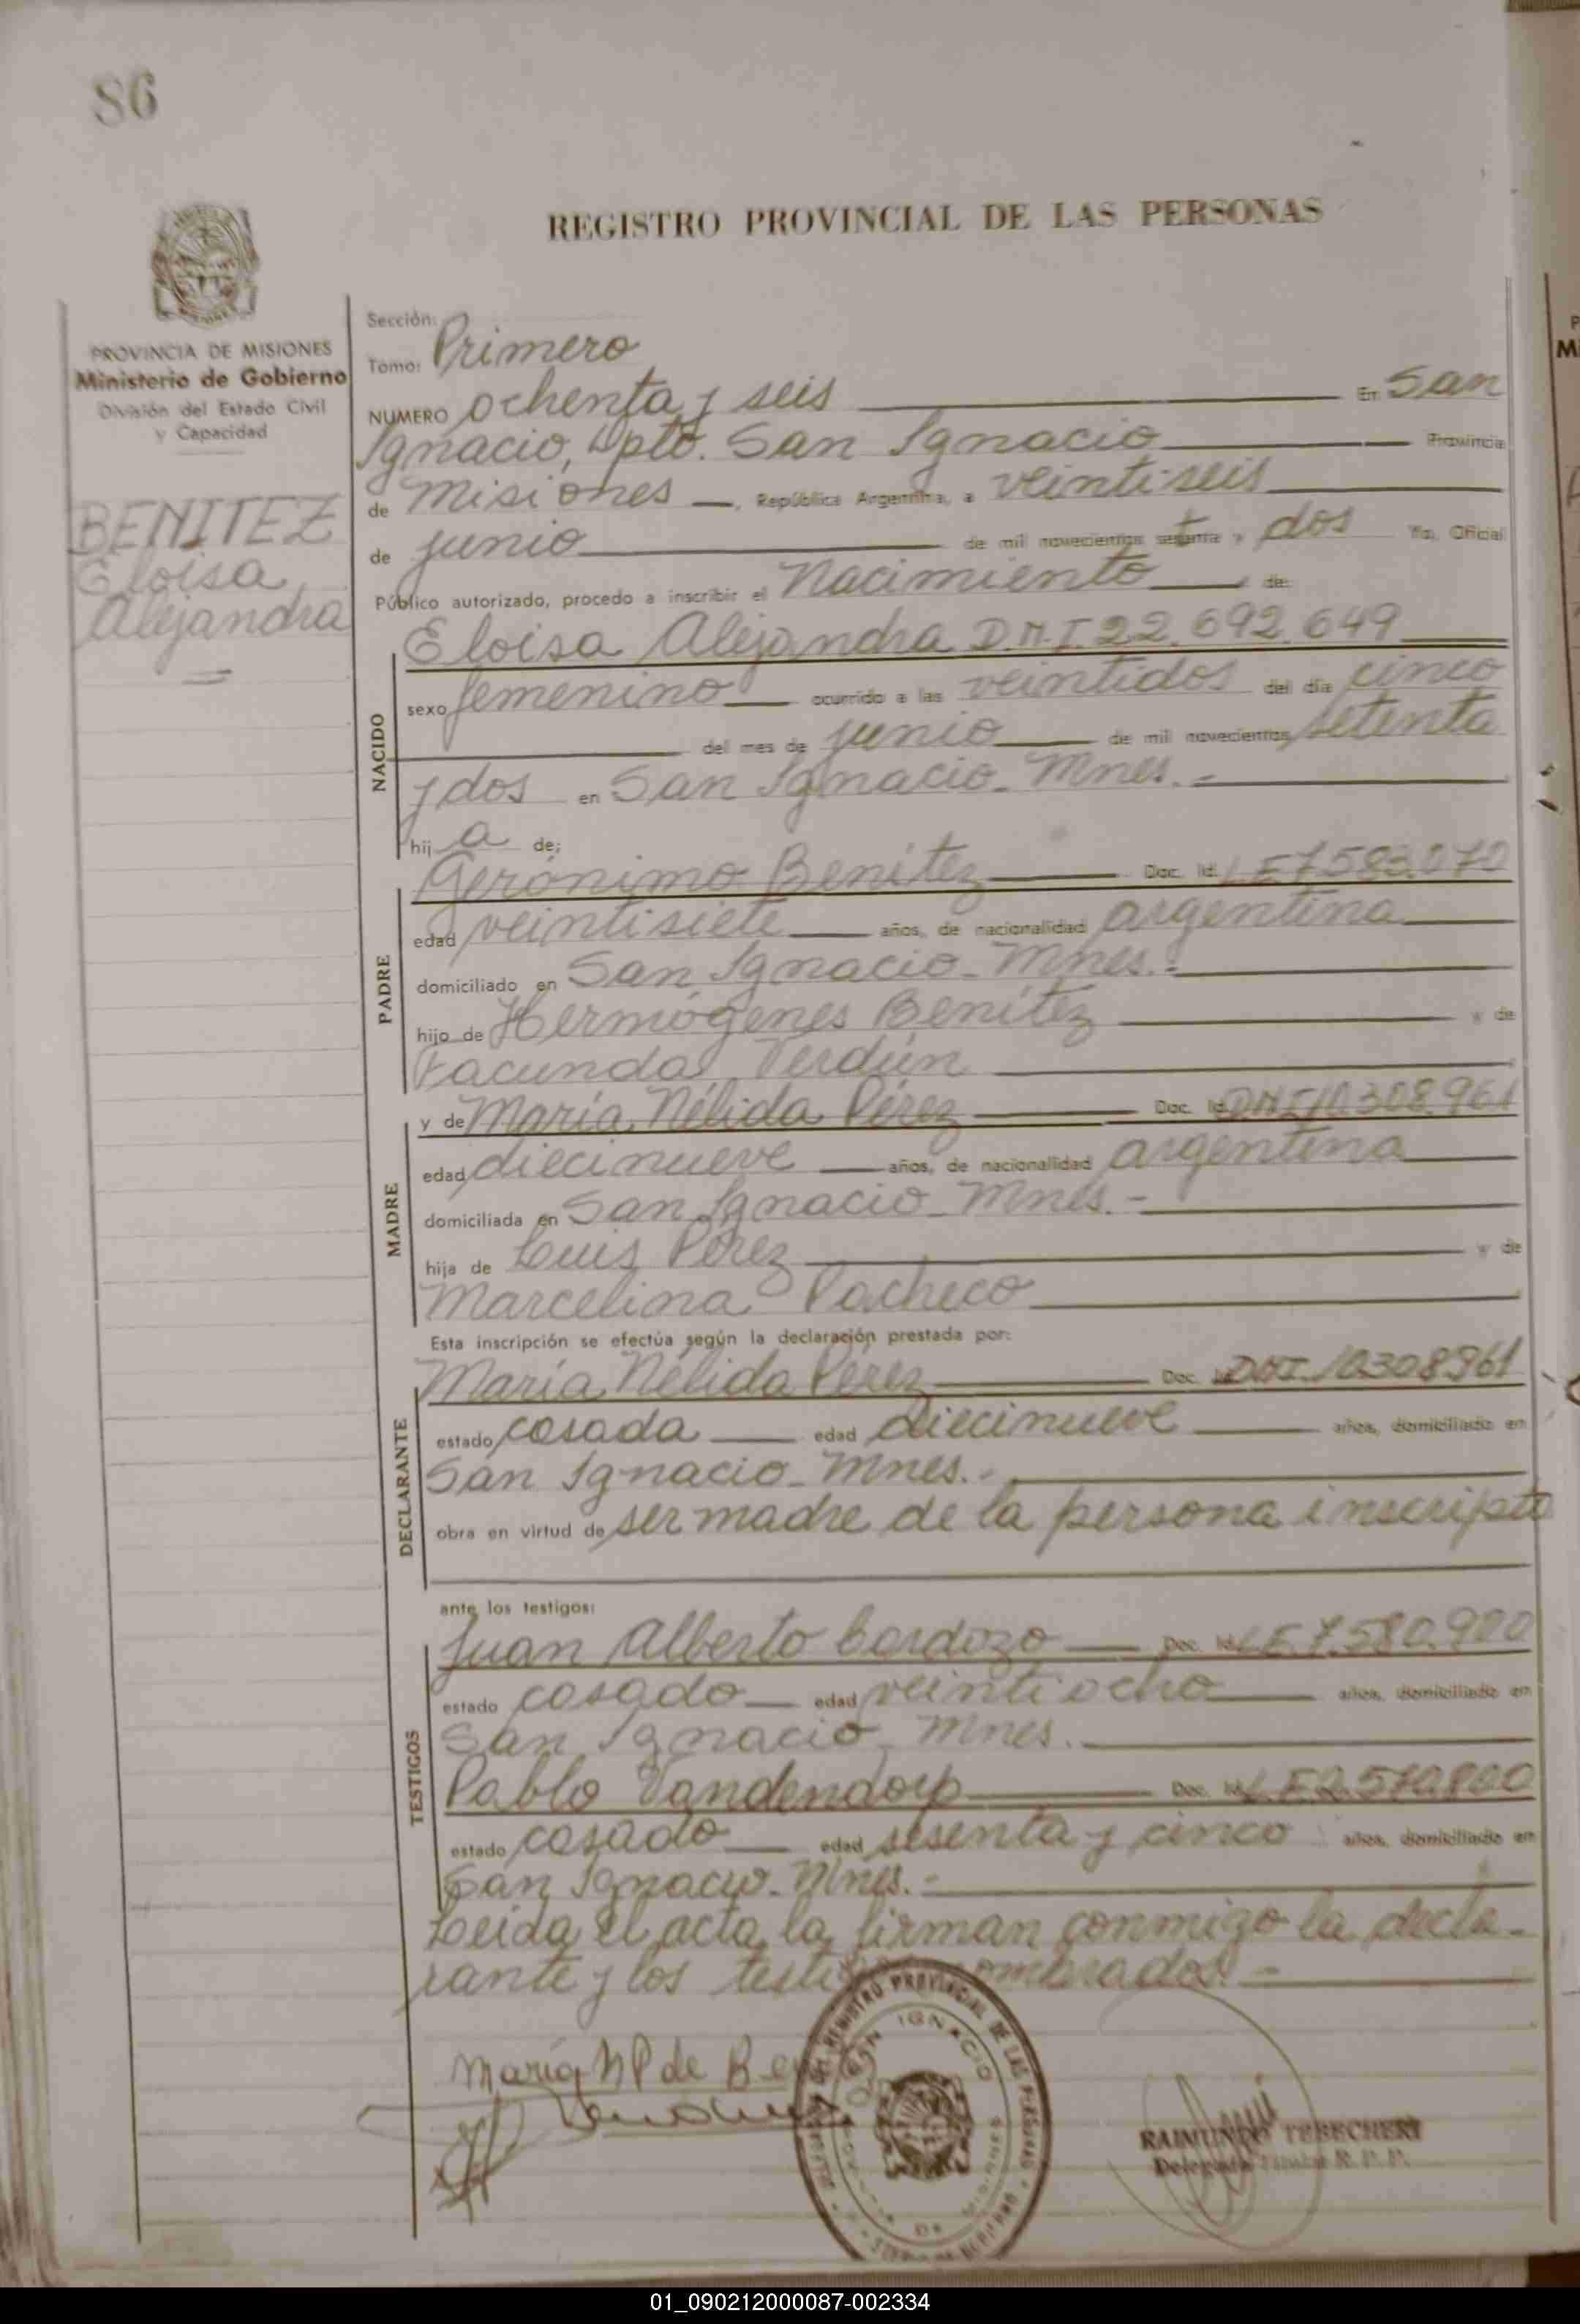 86
REGISTRO PROVINCIAL DE LAS PERSONAS
PROVINCIA DE MISIONES
Ministerio de Gobierno
División del Estado Civil
y Capacidad
BENITEZ
Eloisa
Alejandra
Sección:
Tomo: Primero
NUMERO ochenta y seis En San
Ignacio, Dpto. San Ignacio Provincia
de Misiones, República Argentina, a veintiseis
de junio de mil novecientos setenta y dos Yo, Oficial
Público autorizado, procedo a inscribir el Nacimiento de:
NACIDO
Eloisa Alejandra D.N.I 22.692.649
sexo femenino ocurrido a las veintidos del día cinco
del mes de junio de mil novecientos setenta
y dos en San Ignacio - Mnes. -
hij a de:
PADRE
Gerónimo Benítez Doc. Id. L.E 7.583.070
edad veintisiete años, de nacionalidad argentina
domiciliado en San Ignacio - Mnes. -
hijo de Hermógenes Benítez y de
Facunda Verdún
MADRE
y de María Nélida Pérez Doc. Id. DNI 10.308.961
edad diecinueve años, de nacionalidad argentina
domiciliada en San Ignacio - Mnes. -
hija de Luis Pérez y de
Marcelina Pacheco
Esta inscripción se efectúa según la declaración prestada por:
DECLARANTE
María Nélida Pérez Doc. Id. DNI. 10.308.961
estado casada edad diecinueve años, domiciliado en
San Ignacio - Mnes. -
obra en virtud de ser madre de la persona inscripta
ante los testigos:
TESTIGOS
Juan Alberto Cardozo Doc. Id. L.E. 7.580.900
estado casado edad veintiocho años, domiciliado en
San Ignacio - Mnes.
Pablo Vandendorp Doc. Id. L.E 2.570.800
estado casado edad sesenta y cinco años, domiciliado en
San Ignacio - Mnes. -
Leida el acta la firman conmigo la decla-
rante y los testigos nombrados. -
María N P de Be
DEL REGISTRO PROVINCIAL DE LAS PERSONAS
SAN IGNACIO
MISIONES
RAIMUNDO TEBECHERI
Delegado Titular R. P. P.
01_090212000087-002334